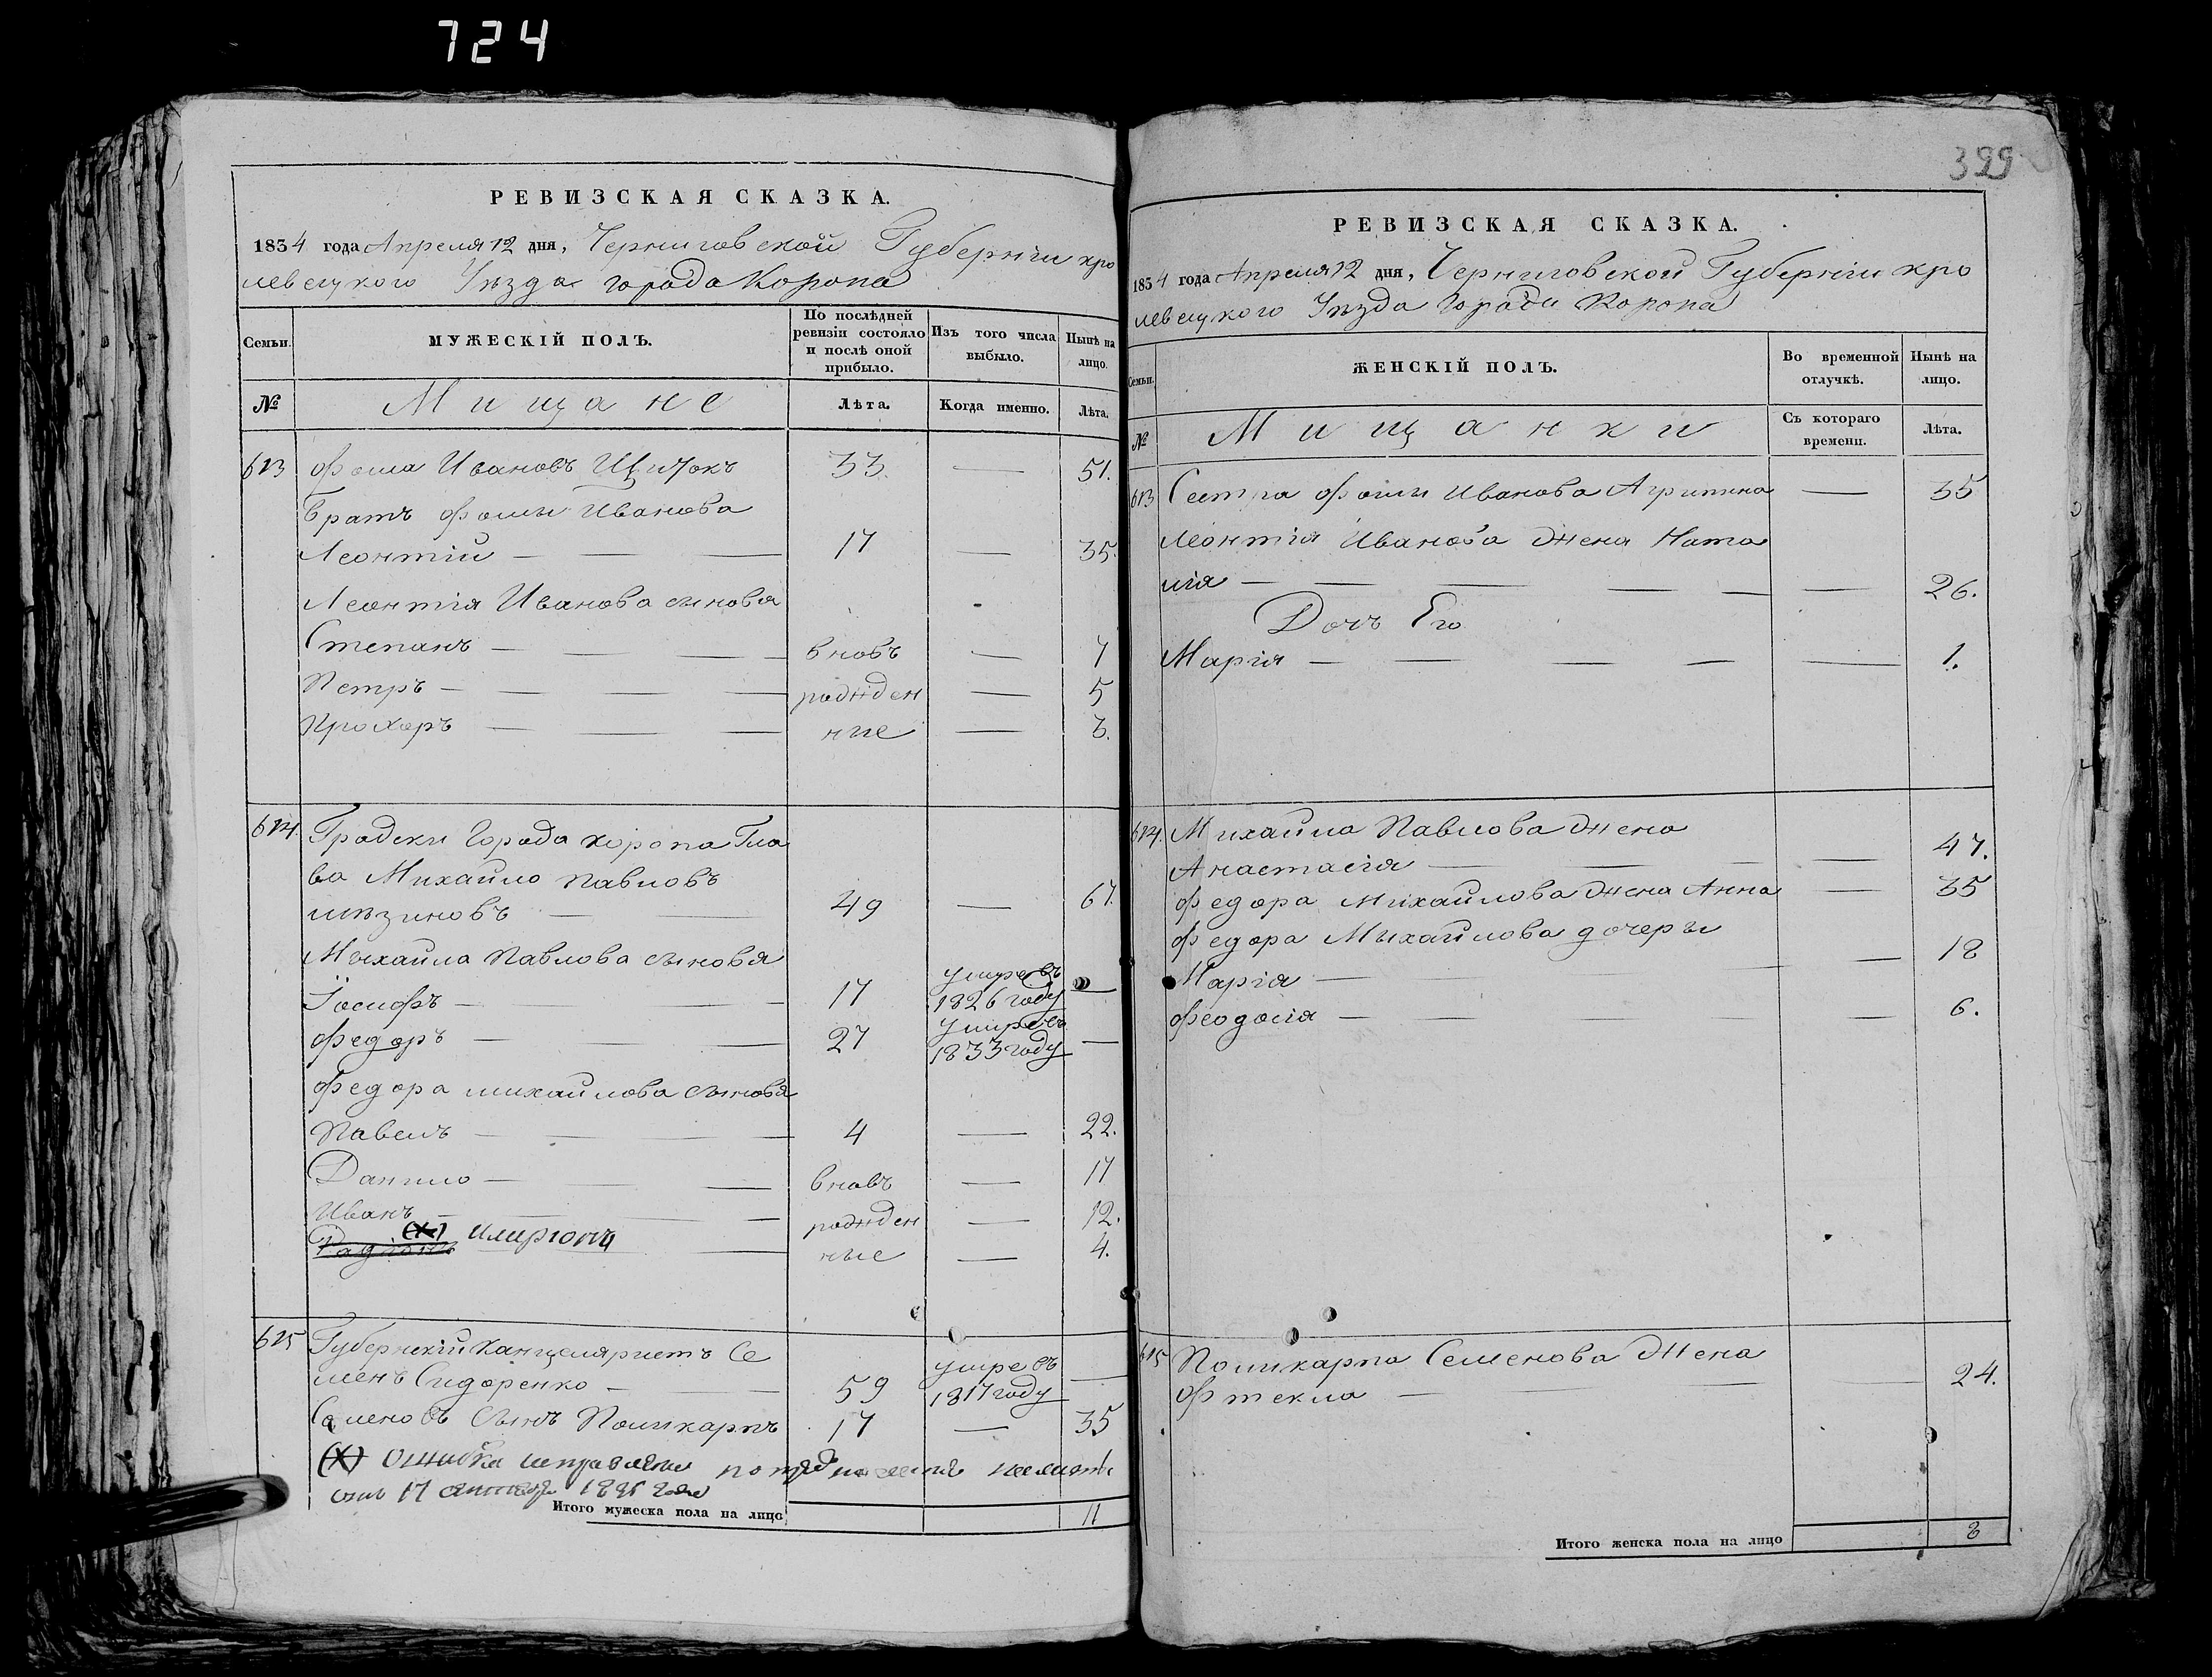 724
РЕВИЗСКАЯ СКАЗКА.
1834 года Апреля 12 дня, Черниговской Губерніи кро
левецкого Уѣзда города Коропа
Семьи.
МУЖЕСКІЙ ПОЛЪ.
По послѣдней ревизіи состояло и послѣ оной прибыло.
Изъ того числа выбыло.
Нынѣ на лицо.
№
Мищане
Лѣта.
Когда именно.
Лѣта.
613 Фома Ивановъ 33. — 51.
Братъ Фомы Иванова
Леонтій — 17 — 35.
Леонтія Иванова сыновья
Степанъ — вновь — 7
Петръ — рожден — 5
Прохоръ — ние — 3.
614. Градски Города Коропа Гла
ва Михайло Павловъ
49 — 67.
Михайла Павлова сыновья
Іосифъ — 17 умре въ 1826 году —
Федоръ — 27 умре въ 1833 году —
Федора Михайлова сыновья
Павелъ — 4 — 22.
Данило — вновь — 17
Иванъ — рожден — 12.
Радіонъ (X) Иларіонъ — ные — 4.
615 Губернскій Канцеляристъ Се
менъ Сидоренко — 59 умре въ 1817 году —
Семеновъ сынъ Поликарпъ 17 — 35
(X) Ошибка исправлена по
17
Итого мужеска пола на лицо 11
399
РЕВИЗСКАЯ СКАЗКА.
1834 года Апреля 12 дня, Черниговской Губерніи кро
левецкого Уѣзда Города Коропа
Семьи.
ЖЕНСКІЙ ПОЛЪ.
Во временной отлучкѣ.
Нынѣ на лицо.
№
Мищанки
Съ котораго времени.
Лѣта.
613 Сестра Фомы Иванова Агрипина — 35
Леонтія Иванова жена Ната
лія — 26.
Дочь Его
Марія — 1.
614. Михайла Павлова жена
Анастасія — 47.
Федора Михайлова жена Анна — 35
Федора Михайлова дочеры
Марія — 18
Феодосія — 6.
615 Поликарпа Семенова жена
Фтекла — 24.
Итого женска пола на лицо 8